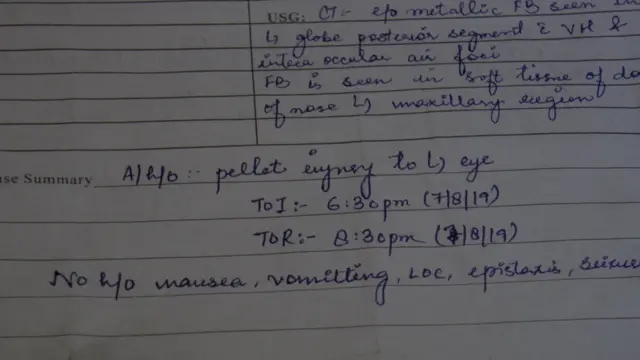 USG: CT:- e/o metallic FB seen in
L) globe posterior segment c̄ VH &
intra occular air foci
FB is seen in soft tissue of do
of nose L) maxillary region
se Summary A/h/o :- pellet injury to L) eye
TOI:- 6:30pm (7/8/19)
TOR:- 8:30pm (7/8/19)
No h/o nausea, vomitting, LOC, epistaxis, seizu